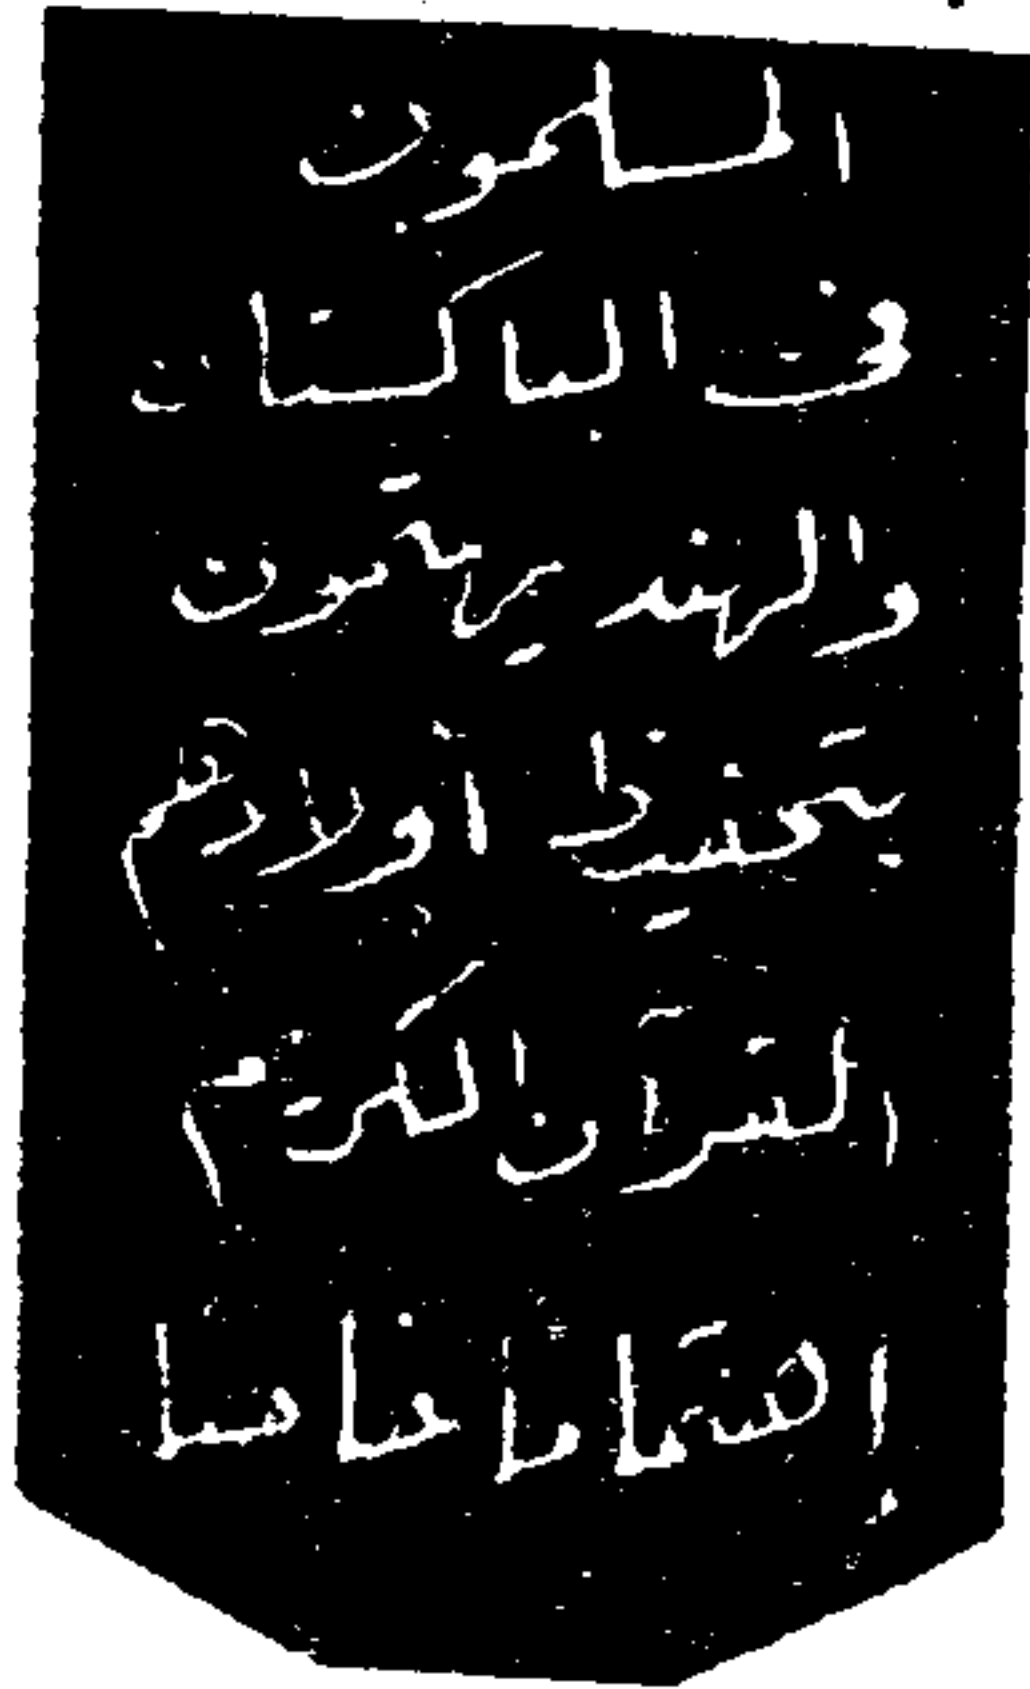 المسلمون
في الباكستان
والهند يهتمون
بتحفيظ أولادهم
القرآن الكريم
إهتماما خاصا